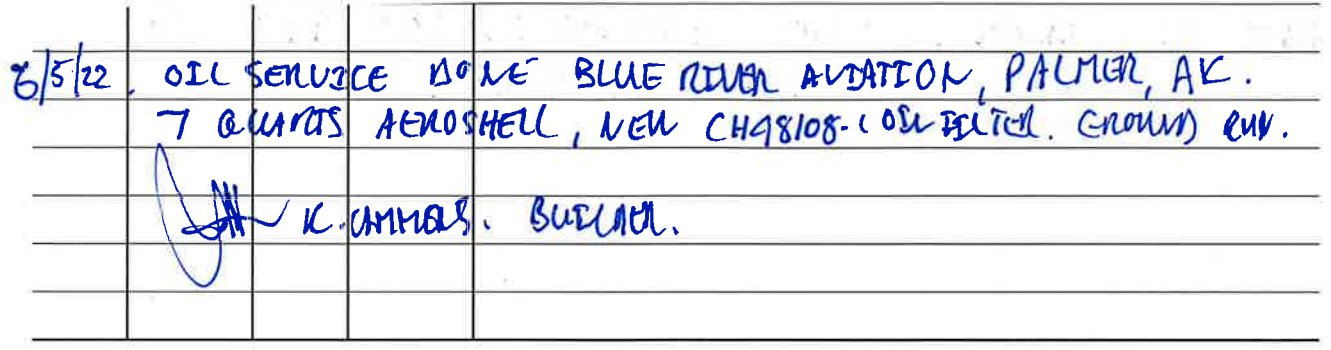 8/5/22. OIL SERVICE DONE BLUE RIVER AVIATION, PALMER, AK.
7 QUARTS AEROSHELL, NEW CH48108-1 OIL FILTER. GROUND RUN.
K. BUILDER.